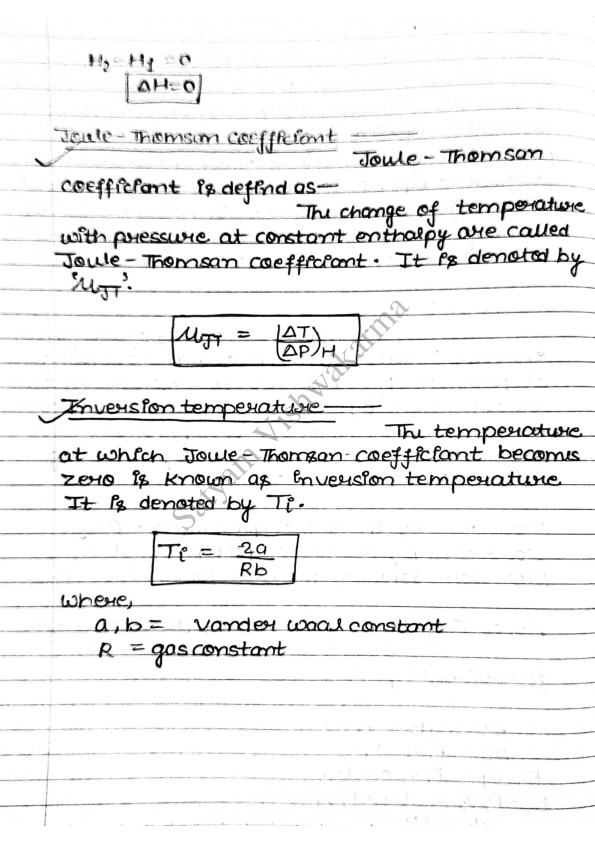 H₂ - H₁ = 0
ΔH=0
Joule - Thomson coefficiant
Joule - Thomson
coefficiant is defind as—
The change of temperature
with pressure at constant enthalpy are called
Joule - Thomson coefficiant. It is denoted by
'μJT'.
μJT = (ΔT/ΔP)H
Inversion temperature
The temperature
at which Joule - Thomson coefficiant becomes
zero is known as inversion temperature
It is denoted by Ti.
Ti = 2a/Rb
where,
a, b = Vander waal constant
R = gas constant
Satyam Vishwakarma